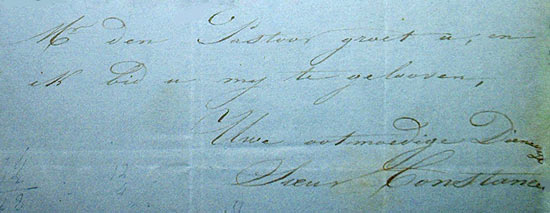 Mr den Pastoor groet u, en
ik bid u mij te gelooven,
Uwe ootmoedige Dien
Sœur Constance